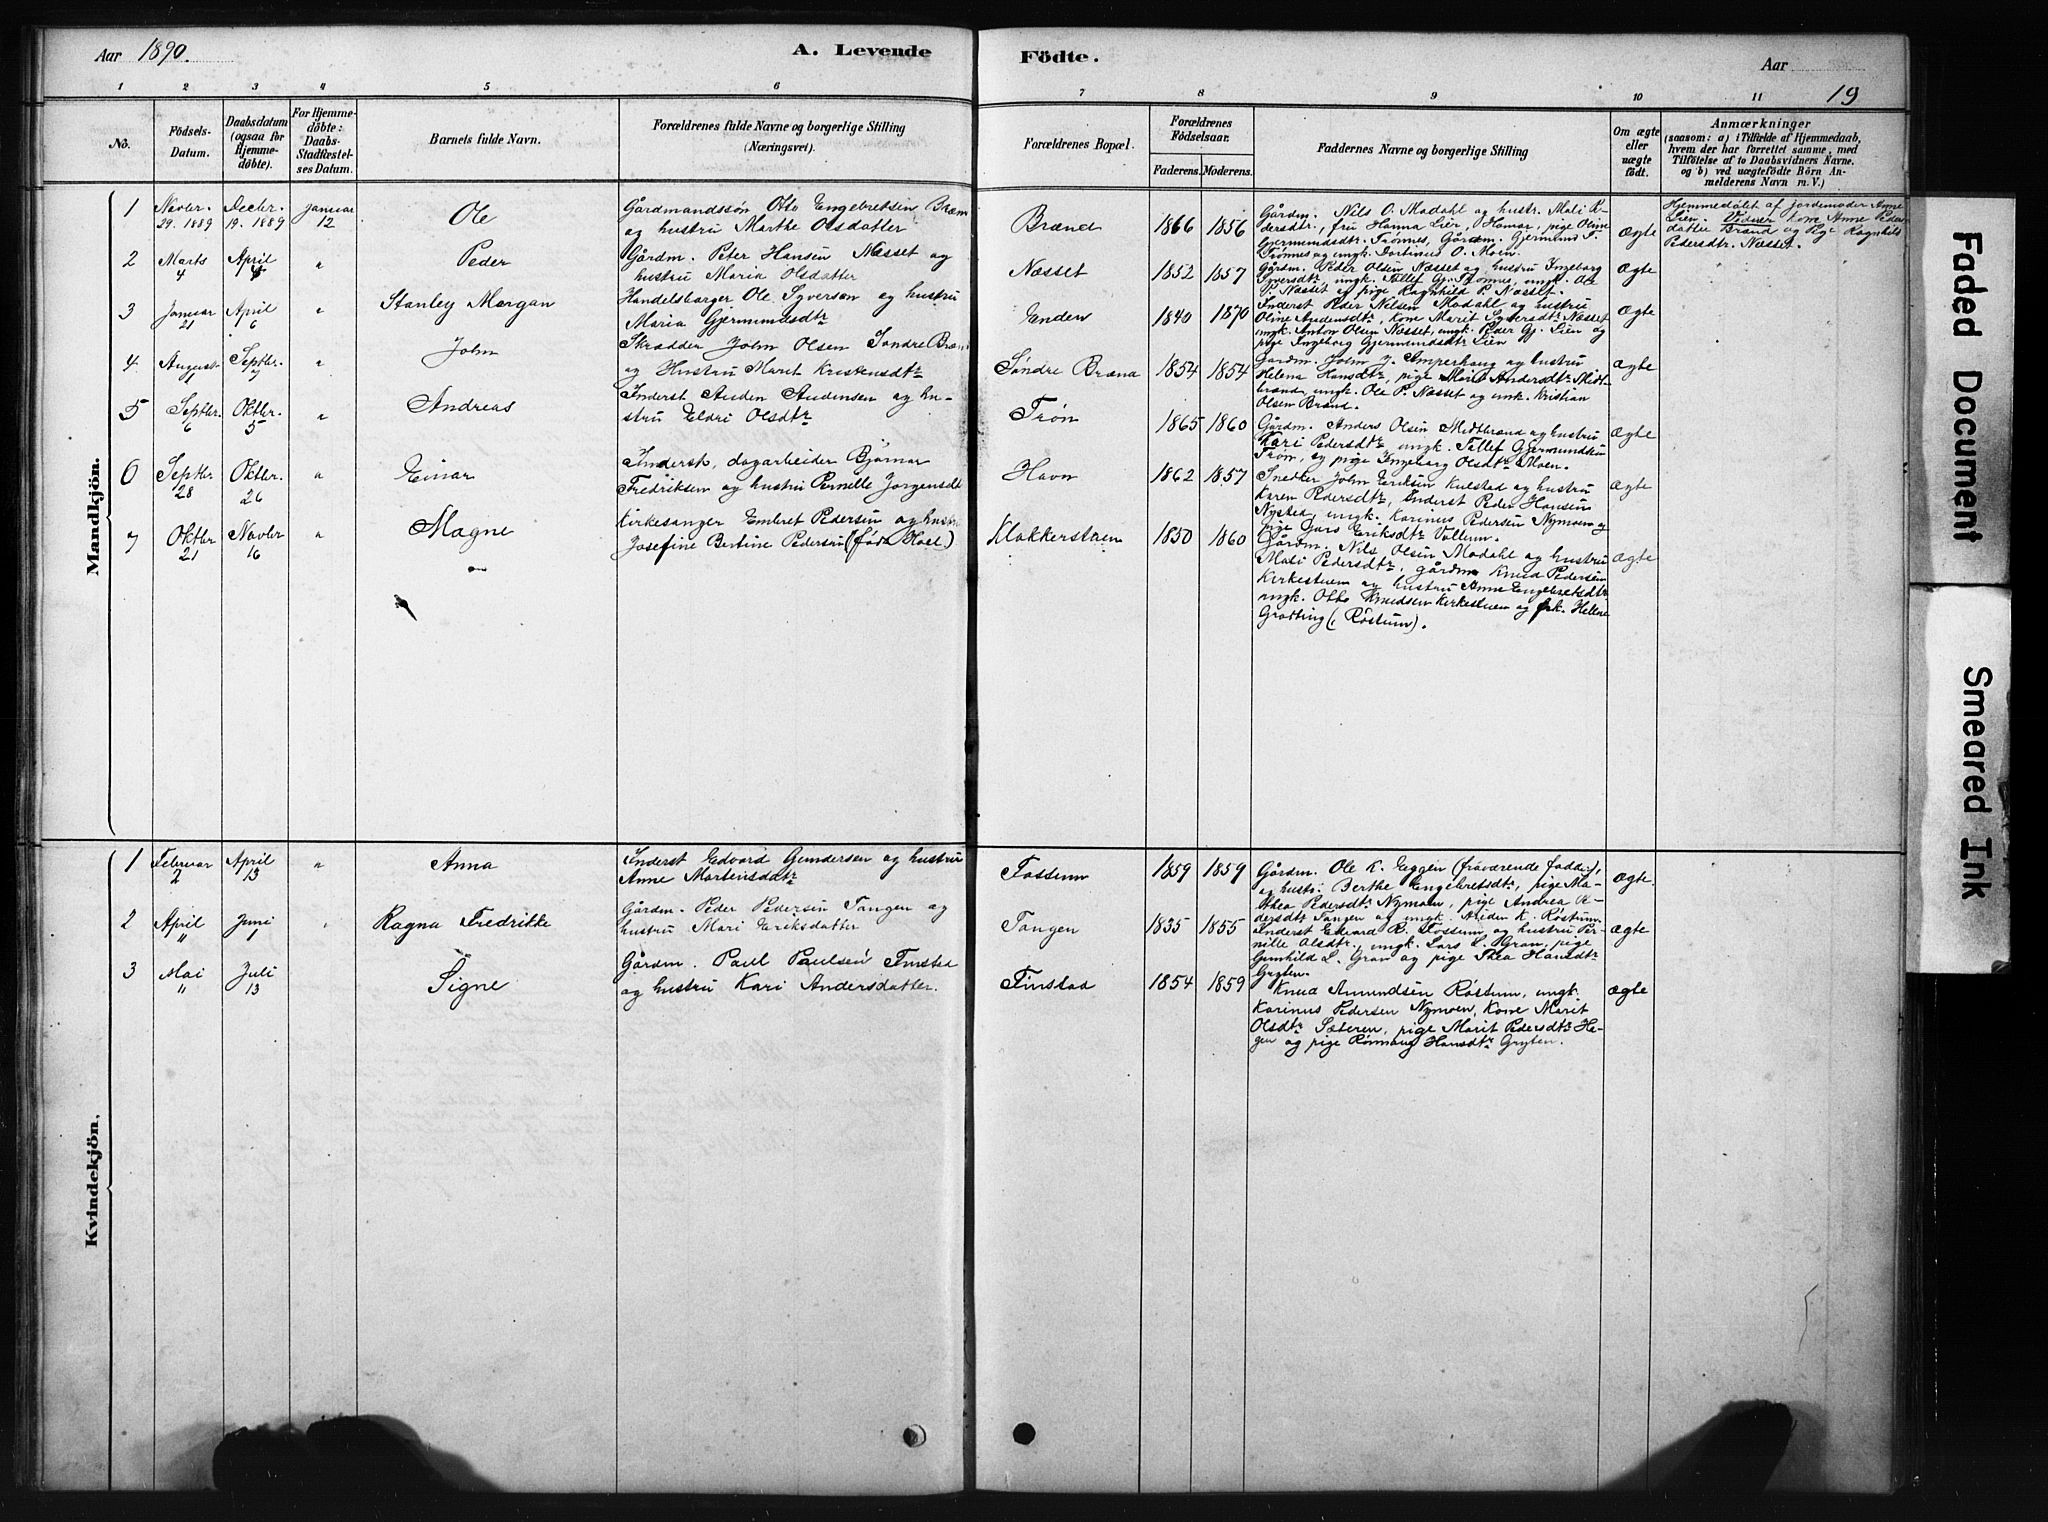 Aar 1890.
A. Levende Födte.
Aar
19
1 2 3 4 5 6 7 8 9 10 11
No.
Födsels-
Datum.
Daabsdatum
(ogsaa for
Hjemme-
döbte).
For Hjemme-
döbte:
Daabs-
Stadfæstel-
ses Datum.
Barnets fulde Navn.
Forældrenes fulde Navne og borgerlige Stilling
(Næringsvei).
Forældrenes Bopæl.
Forældrenes
Födselsaar.
Faderens. Moderens.
Faddernes Navne og borgerlige Stilling
Om ægte
eller
uægte
født.
Anmærkninger
(saasom: a) i Tilfælde af Hjemmedaab,
hvem der har forrettet samme, med
Tilföielse af to Daabsvidners Navne.
og b) ved uægtefödte Börn An-
melderens Navn m. V.)
Mandkjön.
1
Novbr.
29. 1889
Decbr.
19. 1889
Januar
12
Ole
Gårdmandssøn Otto Engebretsen Brænd
og hustru Marthe Olsdatter
Brænd
1866 1856
Gårdm. Nils O. Modahl og hustr. Mali P-
dersdtr., fru Hanna Lier, Hamar, pige Oline
Gjermundsdtr. Trønnes, Gårdm. Gjermund
Trønnes og ungk. O. Moen.
Ægte
Hjemmedøbt af jordemoder Anne
Lien. Vidner kone Anne Peders-
datter Brænd og Pige Ragnhild
Pedersdtr. Næsset.
2
Marts
4
April
4
"
Peder
Gårdm. Peter Hansen Næsset og
hustru Maria Olsdatter
Næsset
1852 1857
Gårdm. Peder Olsen Næsset og hustru Ingeborg
Syversdtr. ungk. Tellef Gj. Trønnes, ungk. Ole
P. Næsset og pige Ragnhild P. Næsset.
Ægte
3
Januar
21
April
6
"
Stanley Morgan
Handelsborger Ole Syversen og hustru
Maria Gjermundsdtr
Enden
1840 1870
Inderst Peder Nilsen Modahl og hustru
Oline Andersdtr., kone Marit Syversdtr. Næsset
ungk. Anton Olsen Næsset, ungk. Peder Gj. Lien og
pige Ingeborg Gjermundsdtr Lien
Ægte
4
August
Septbr.
7
"
John
Skrædder John Olsen Søndre Bræn
og Hustru Marit Kristensdtr
Søndre Bræna
1854 1854
Gårdm. John J. Imperhaug og hustru
Helena Hansdtr, pige Marit Andersdtr Midt-
brænd, ungk. Ole P. Næsset og unk. Kristian
Olsen Brænd.
Ægte
5
Septbr.
6
Oktbr.
5
"
Andreas
Inderst Auden Audensen og hu-
stru Eldri Olsdtr
Trøn
1865 1860
Gårdm. Anders Olsen Midtbrænd og hustru
Kari Pedersdtr, ungk. Tellef Gjermundsen
Trøn, og pige Ingeborg Olsdtr Moen.
Ægte
6
Septbr.
28
Oktbr.
26
"
Einar
Inderst, dagarbeider Bjørnar
Fredriksen og hustru Pernille Jørgensdtr
Havn
1862 1857
Snedker John Eriksen Kulsted og hustru
Karen Pedersdtr, Inderst Peder Hansen
Nysted, ungk. Karinus Pedersen Nymoen og
pige Eriksdtr Vollum.
Ægte
7
Oktbr
21
Novbr
16
"
Magne
Kirkesanger Embret Pedersen og hustr.
Josefine Bertine Pedersen (født Hoel)
Klokkerstuen
1850 1860
Gårdm. Nils Olsen Modahl og hustru
Mali Pedersdtr, gårdm Knud Pedersen
Kirkestuen og hustru Anne Engebretsdtr
ungk. Otto Knudsen Kirkestuen og frk. Hellene
Grøtting (, Røstum).
Ægte
Kvindekjön.
1
Februar
2
April
13
"
Anna
Inderst Edvard Gundersen og hustru
Anne Martensdatr
Fossum
1859 1859
Gårdm. Ole K. Eggen (fraværende fadder),
og hustr. Berthe Engebretsdtr, pige Ma-
thea Pedersdtr Nymoen, pige Andrea Pe-
dersdtr Tangen og ungk. Anden K. Røstum.
Ægte.
2
April
"
Juni
1
"
Ragna Fredrikke
Gårdm. Peder Pedersen Tangen og
hustru Mari Eriksdatter
Tangen
1835 1855
Inderst Edvard R. Fossum og hustru Per-
nille Olsdtr, ungk. Lars L. Gran, pige
Gunhild L. Gran og pige Thea Hansdtr
Gryten.
Ægte
3
Mai
"
Juli
13
Signe
Gårdm. Paul Paulsen Finstad
og hustru Kari Andersdatter.
Finstad
1854 1859
Knud Amundsen Røstum, ungk.
Karinus Pedersen Nymoen, Kone Marit
Olsdtr Sæteren, pige Marit Pedersdtr He-
gen og pige Rønnaug Hansdtr Gryten.
Ægte
Faded Document
Smeared Ink